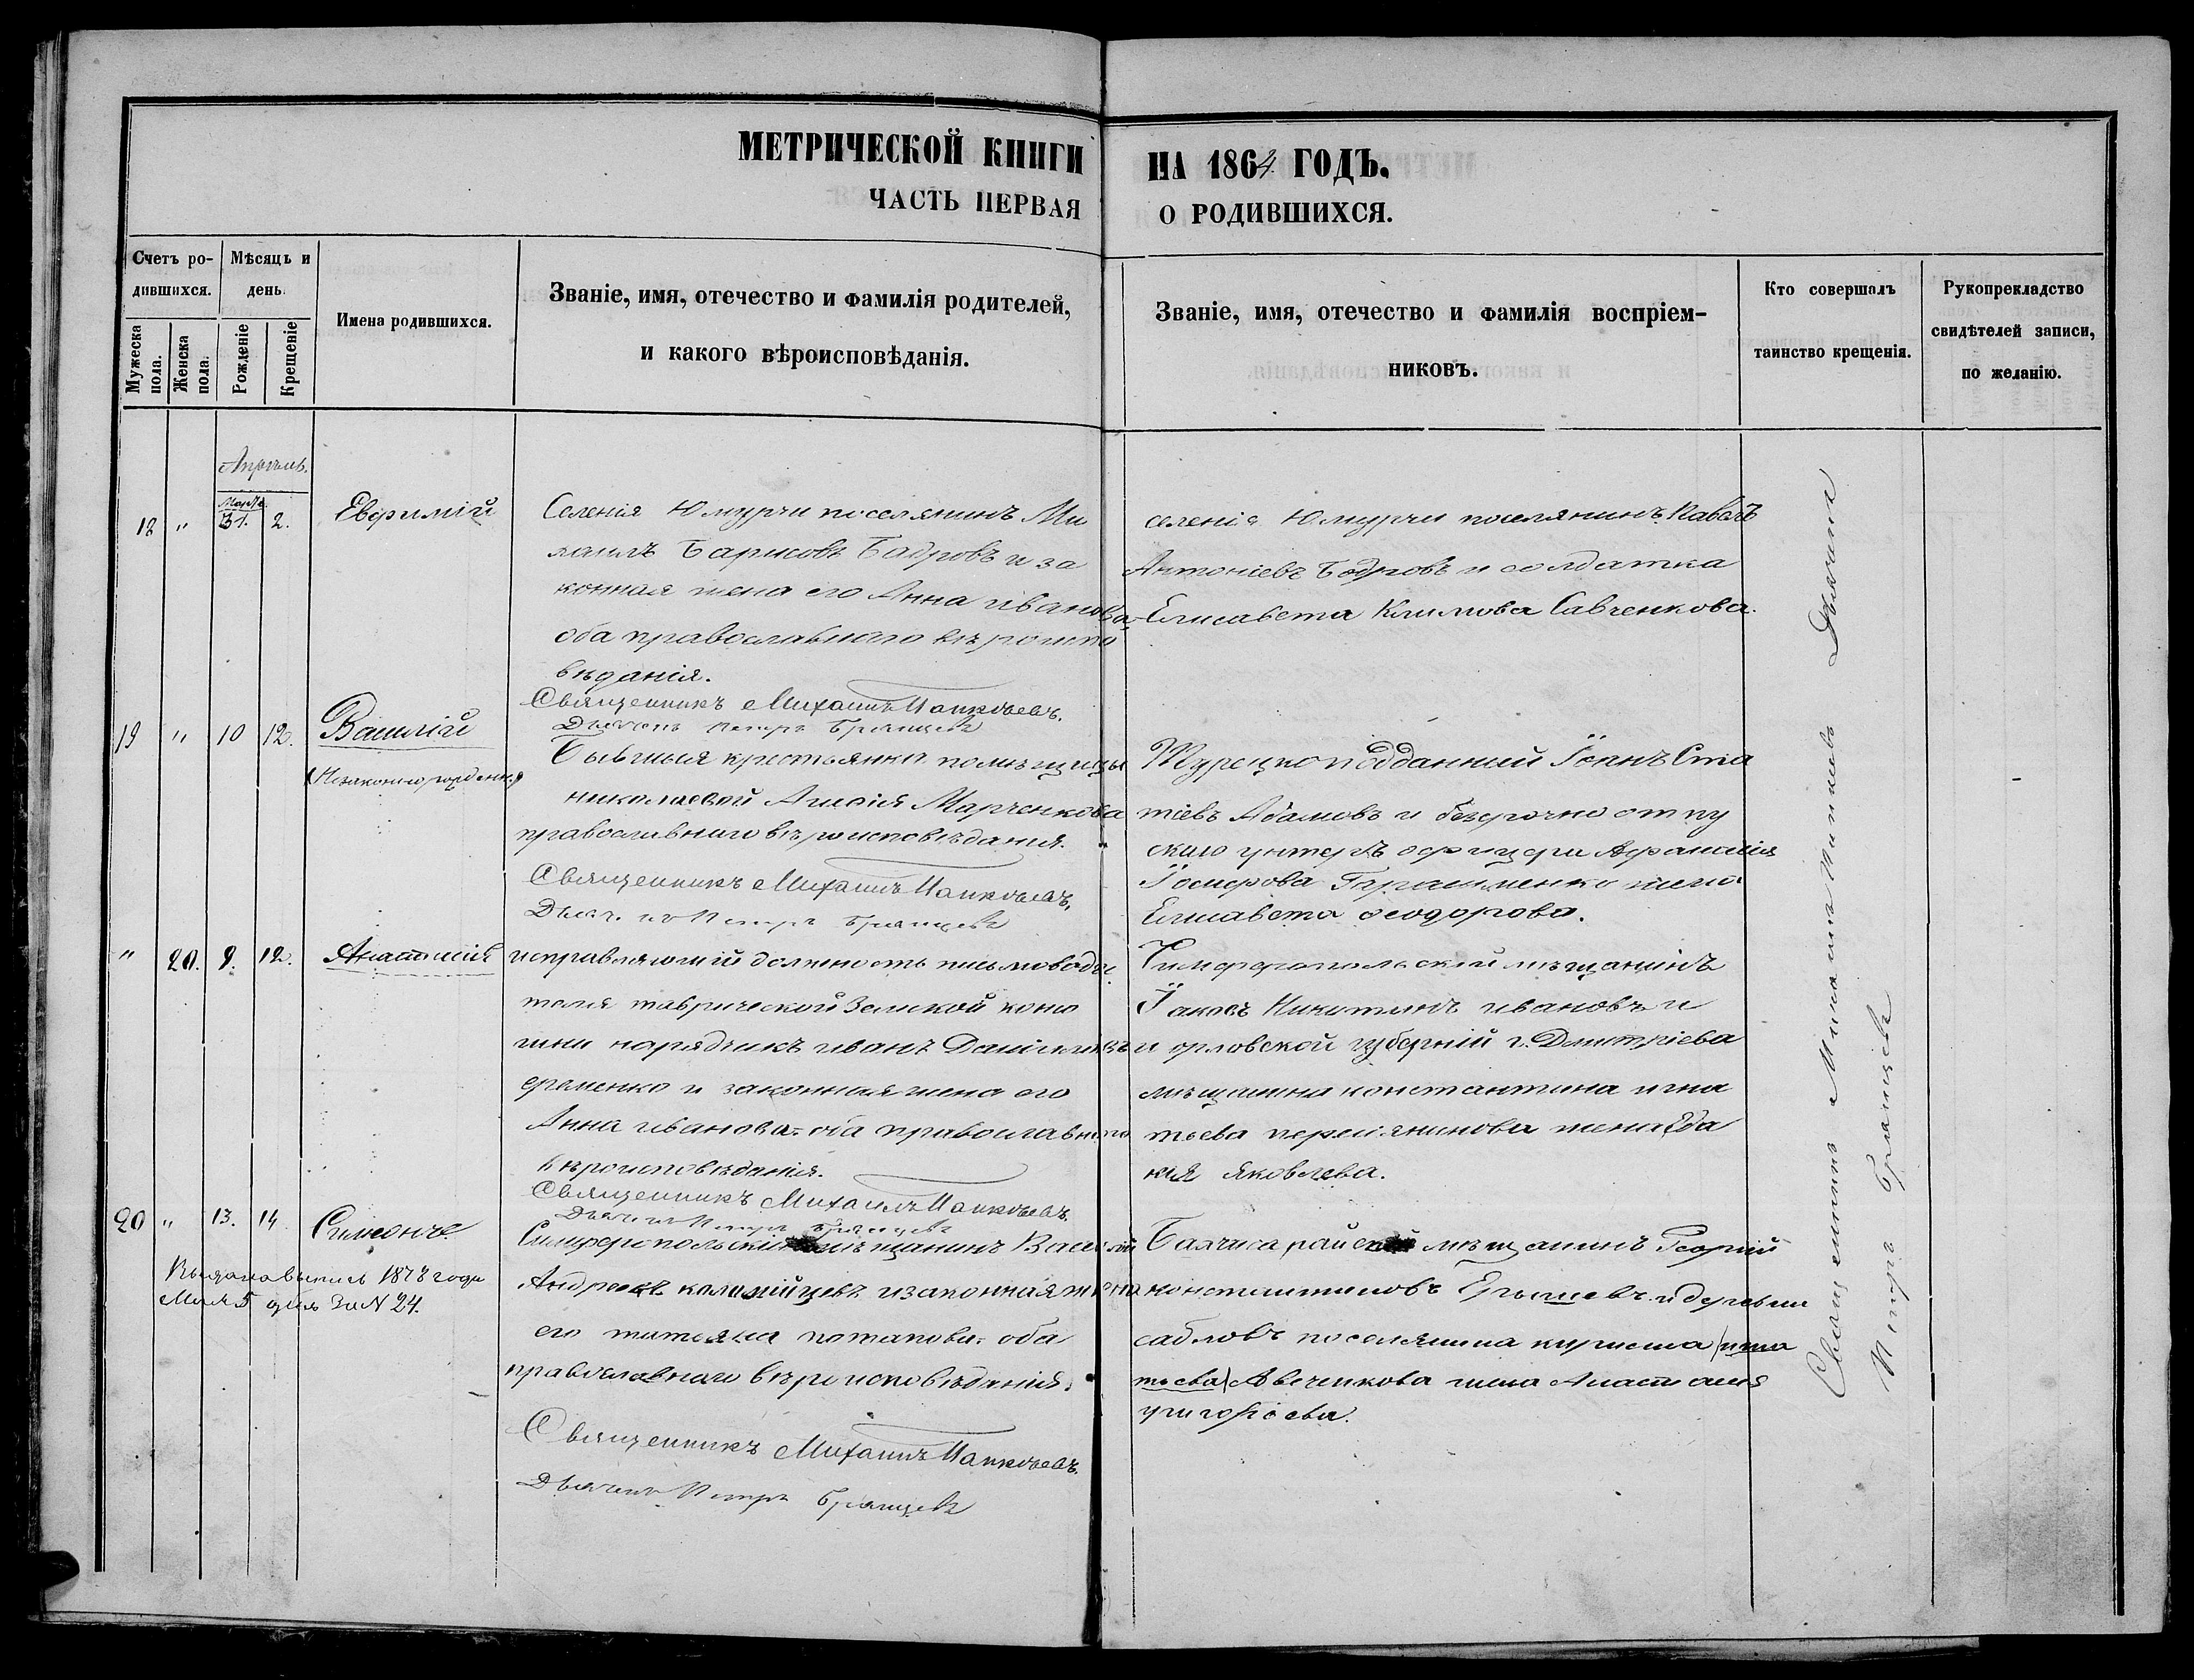 МЕТРИЧЕСКОЙ КНИГИ НА 1864 ГОДЪ.
ЧАСТЬ ПЕРВАЯ О РОДИВШИХСЯ.
Счетъ ро-
дившихся.
Мужеска пола.
Женска пола.
Мѣсяцъ и
день.
Рожденіе
Крещеніе
Имена родившихся.
Званіе, имя, отечество и фамилія родителей,
и какого вѣроисповѣданія.
Званіе, имя, отечество и фамилія воспріем-
никовъ.
Кто совершалъ
таинство крещенія.
Рукоприкладство
свидѣтелей записи,
по желанію.
Апрѣль.
Марта
18 " 31. 2. Евфимій
Селенія Юмурчи поселянинъ Ми
хаилъ Барисовъ Бадровъ и за
конная жена его Анна иванова
оба православнаго вѣроиспо
вѣданія.
Священникъ Михаилъ
Дьячекъ Петръ Брянцевъ
селенія Юмурчи поселянинъ Павелъ
Антоніевъ Бодровъ и солдатка
Елисавета Климова Савченкова.
19 " 10 12. Василій
Незаконнорожденный
Бывшыя крестьянки помѣщицы
николаевой Марченкова
православнаго вѣроисповѣданія.
Священникъ Михаилъ
Дьячекъ Петръ Брянцевъ
Турецкоподданный Іоанъ Ста
тіевъ и безсрочно отпу
скнаго унтеръ офицера
Іосифова жена
Елисавета Феодорова.
" 20. 9. 12. Анастасія
исправляющій должность письмоводи
теля таврической Земской коню
шни нарядчикъ иванъ Даніиловъ
еременко и законная жена его
Анна иванова оба православнаго
вѣроисповѣданія.
Священникъ Михаилъ
Дьячекъ Петръ Брянцевъ
Симферопольскій мѣщанинъ
Іаковъ Никитинъ ивановъ и
и орловской губерній г. Дмитріева
мѣщанина константина игна
тьева жена
яковлева.
20 " 13. 14 Симеонъ
Выдана выпись 1878 года
Мая 5 дня За N 24.
Симферопольскій мѣщанинъ Василій
Андреевъ коломійцевъ и законная жена
его татьяна потапова оба
православнаго вѣроисповѣданія.
Священникъ Михаилъ
Дьячекъ Петръ Брянцевъ
Бахчисарайскій мѣщанинъ Георгій
константиновъ и деревни
сабловъ поселянина игна
тьева жена Анастасія
григоріева.
Священникъ Михаилъ
Дьячекъ
Петръ Брянцевъ